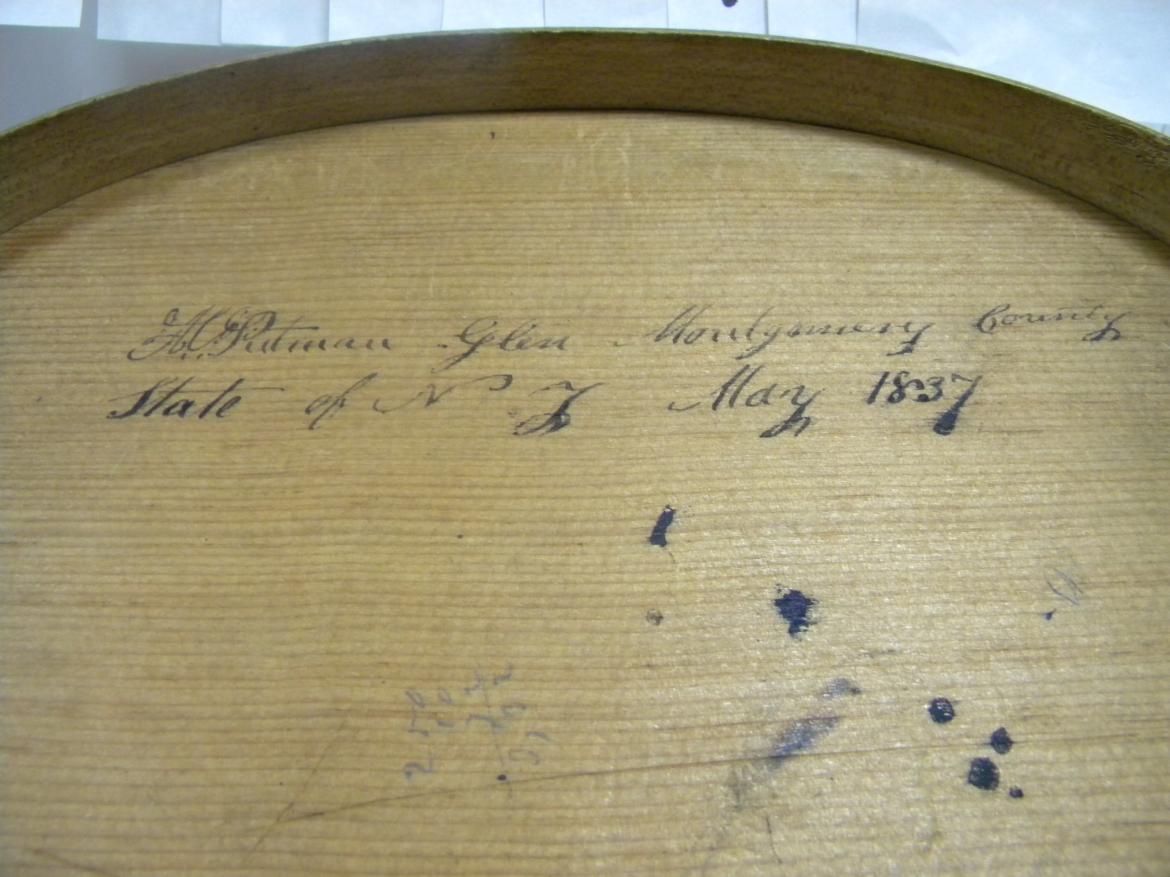 H. Putman Glen Montgomery County
State of N Y May 1837